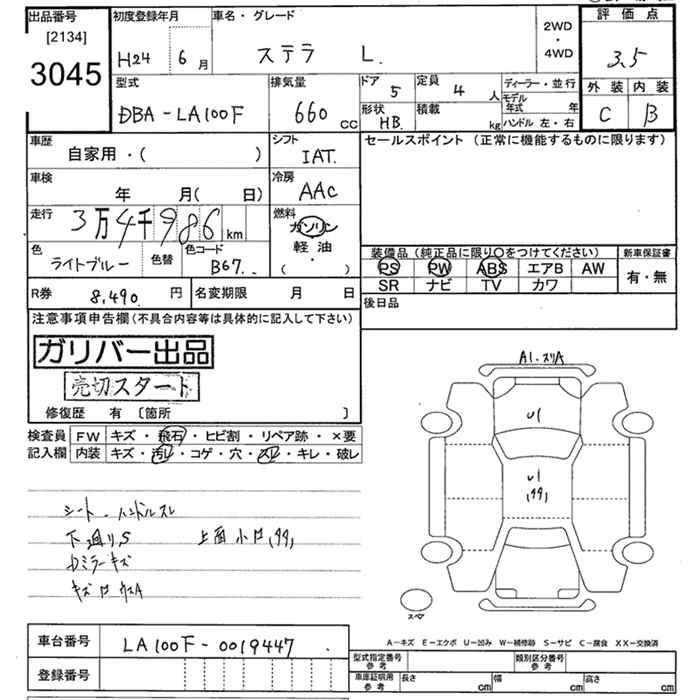 出品番号 初度登録年月 車名・グレード 2WD・4WD 評価点
[2134]
3045 H24 6月 ステラ L. 3.5
外装 内装
C B
型式 排気量 ドア 定員 ディーラー・並行
DBA-LA100F 660cc 5 4人 モデル年式 年
形状 積載 ハンドル 左・右
HB. kg
車歴 シフト セールスポイント(正常に機能するものに限ります)
自家用・( ) IAT.
車検 冷房
年 月( 日) AAC
走行 燃料
3万4千986km ガソリン
軽油
( )
色 色替 色コード
ライトブルー B67.
装備品(純正品に限り○をつけてください) 新車保証書
PS PW ABS エアB AW 有・無
SR ナビ TV カワ
R券 8,490.円 名変期限 月 日 後日品
注意事項申告欄(不具合内容等は具体的に記入して下さい)
ガリバー出品
売切スタート
修復歴 有 〔箇所 〕
検査員 FW キズ・飛石・ヒビ割・リペア跡・×要
記入欄 内装 キズ・汚レ・コゲ・穴・スレ・キレ・破レ
シート、ハンドルスレ
下廻りS 上面小口
Dミラーキズ
A1.スリA
U1
U1
スペア
A-キズ E-エクボ U-凹み W-補修跡 S-サビ C-腐食 XX-交換済
車台番号 LA100F-0019447.
登録番号
型式指定番号 参考 類別区分番号 参考
車庫証明用 参考 長さ cm 幅 cm 高さ cm